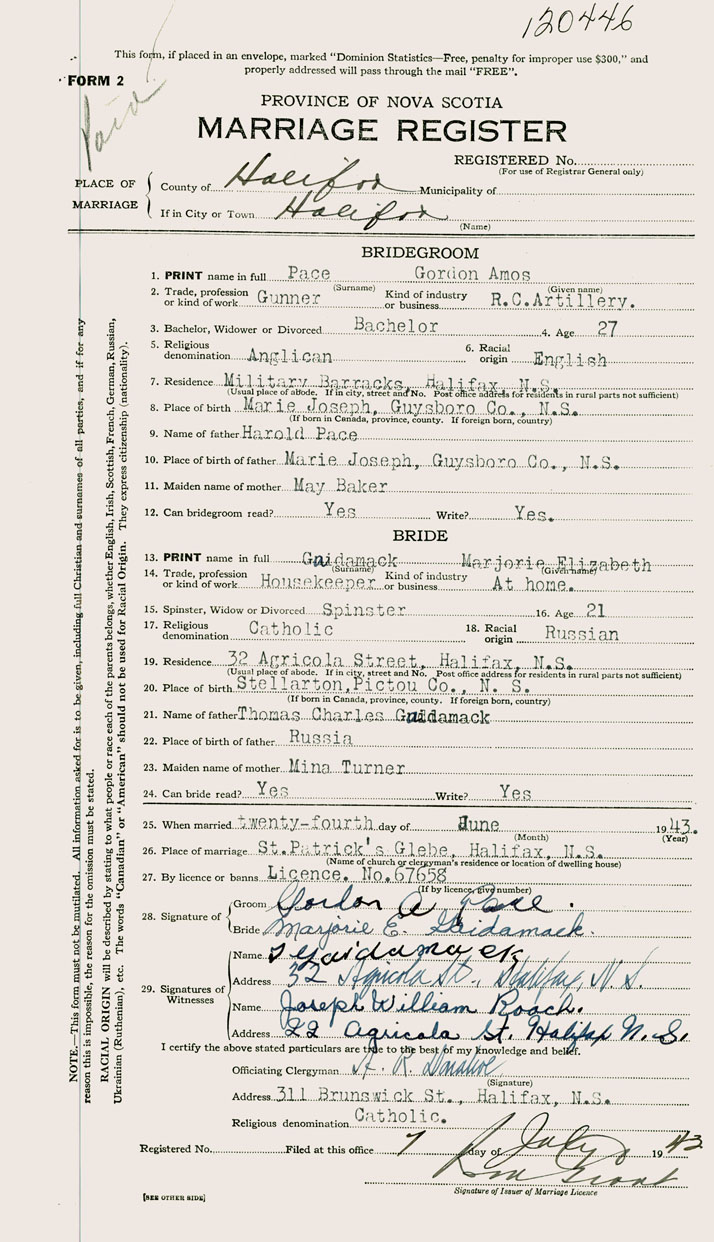 120446
This form, if placed in an envelope, marked "Dominion Statistics—Free, penalty for improper use $300," and
properly addressed will pass through the mail "FREE".
FORM 2
Paid
PROVINCE OF NOVA SCOTIA
MARRIAGE REGISTER
REGISTERED No.
(For use of Registrar General only)
PLACE OF MARRIAGE
County of Halifax Municipality of
If in City or Town Halifax
(Name)
BRIDEGROOM
1. PRINT name in full Pace Gordon Amos
(Surname) (Given name)
2. Trade, profession or kind of work Gunner Kind of industry or business R.C.Artillery.
3. Bachelor, Widower or Divorced Bachelor 4. Age 27
5. Religious denomination Anglican 6. Racial origin English
7. Residence Military Barracks, Halifax, N.S.
(Usual place of abode. If in city, street and No. Post office address for residents in rural parts not sufficient)
8. Place of birth Marie Joseph, Guysboro Co., N.S.
(If born in Canada, province, county. If foreign born, country)
9. Name of father Harold Pace
10. Place of birth of father Marie Joseph, Guysboro Co., N.S.
11. Maiden name of mother May Baker
12. Can bridegroom read? Yes Write? Yes.
BRIDE
13. PRINT name in full Gaidamack Marjorie Elizabeth
(Surname) (Given name)
14. Trade, profession or kind of work Housekeeper Kind of industry or business At home.
15. Spinster, Widow or Divorced Spinster 16. Age 21
17. Religious denomination Catholic 18. Racial origin Russian
19. Residence 32 Agricola Street, Halifax, N.S.
(Usual place of abode. If in city, street and No. Post office address for residents in rural parts not sufficient)
20. Place of birth Stellarton,Pictou Co., N. S.
(If born in Canada, province, county. If foreign born, country)
21. Name of father Thomas Charles Gaidamack
22. Place of birth of father Russia
23. Maiden name of mother Mina Turner
24. Can bride read? Yes Write? Yes
25. When married twenty-fourth day of June 1943.
(Month) (Year)
26. Place of marriage St.Patrick's Glebe, Halifax, N.S.
(Name of church or clergyman's residence or location of dwelling house)
27. By licence or banns Licence. No.67658
(If by licence, give number)
28. Signature of
Groom Gordon A Pace.
Bride Marjorie E. Gaidamack.
29. Signatures of Witnesses
Name Gaidamack
Address 32 Agricola St., Halifax, N. S.
Name Joseph William Roach.
Address 22 Agricola St. Halifax N. S.
I certify the above stated particulars are true to the best of my knowledge and belief.
Officiating Clergyman A. R. Donahoe
(Signature)
Address 311 Brunswick St., Halifax, N.S.
Religious denomination Catholic.
Registered No. Filed at this office 7 day of July 1943
Grant
Signature of Issuer of Marriage Licence
[SEE OTHER SIDE]
NOTE.—This form must not be mutilated. All information asked for is to be given, including full Christian and surnames of all parties, and if for any
reason this is impossible, the reason for the omission must be stated.
RACIAL ORIGIN will be described by stating to what people or race each of the parents belongs, whether English, Irish, Scottish, French, German, Russian,
Ukrainian (Ruthenian), etc. The words "Canadian" or "American" should not be used for Racial Origin. They express citizenship (nationality).